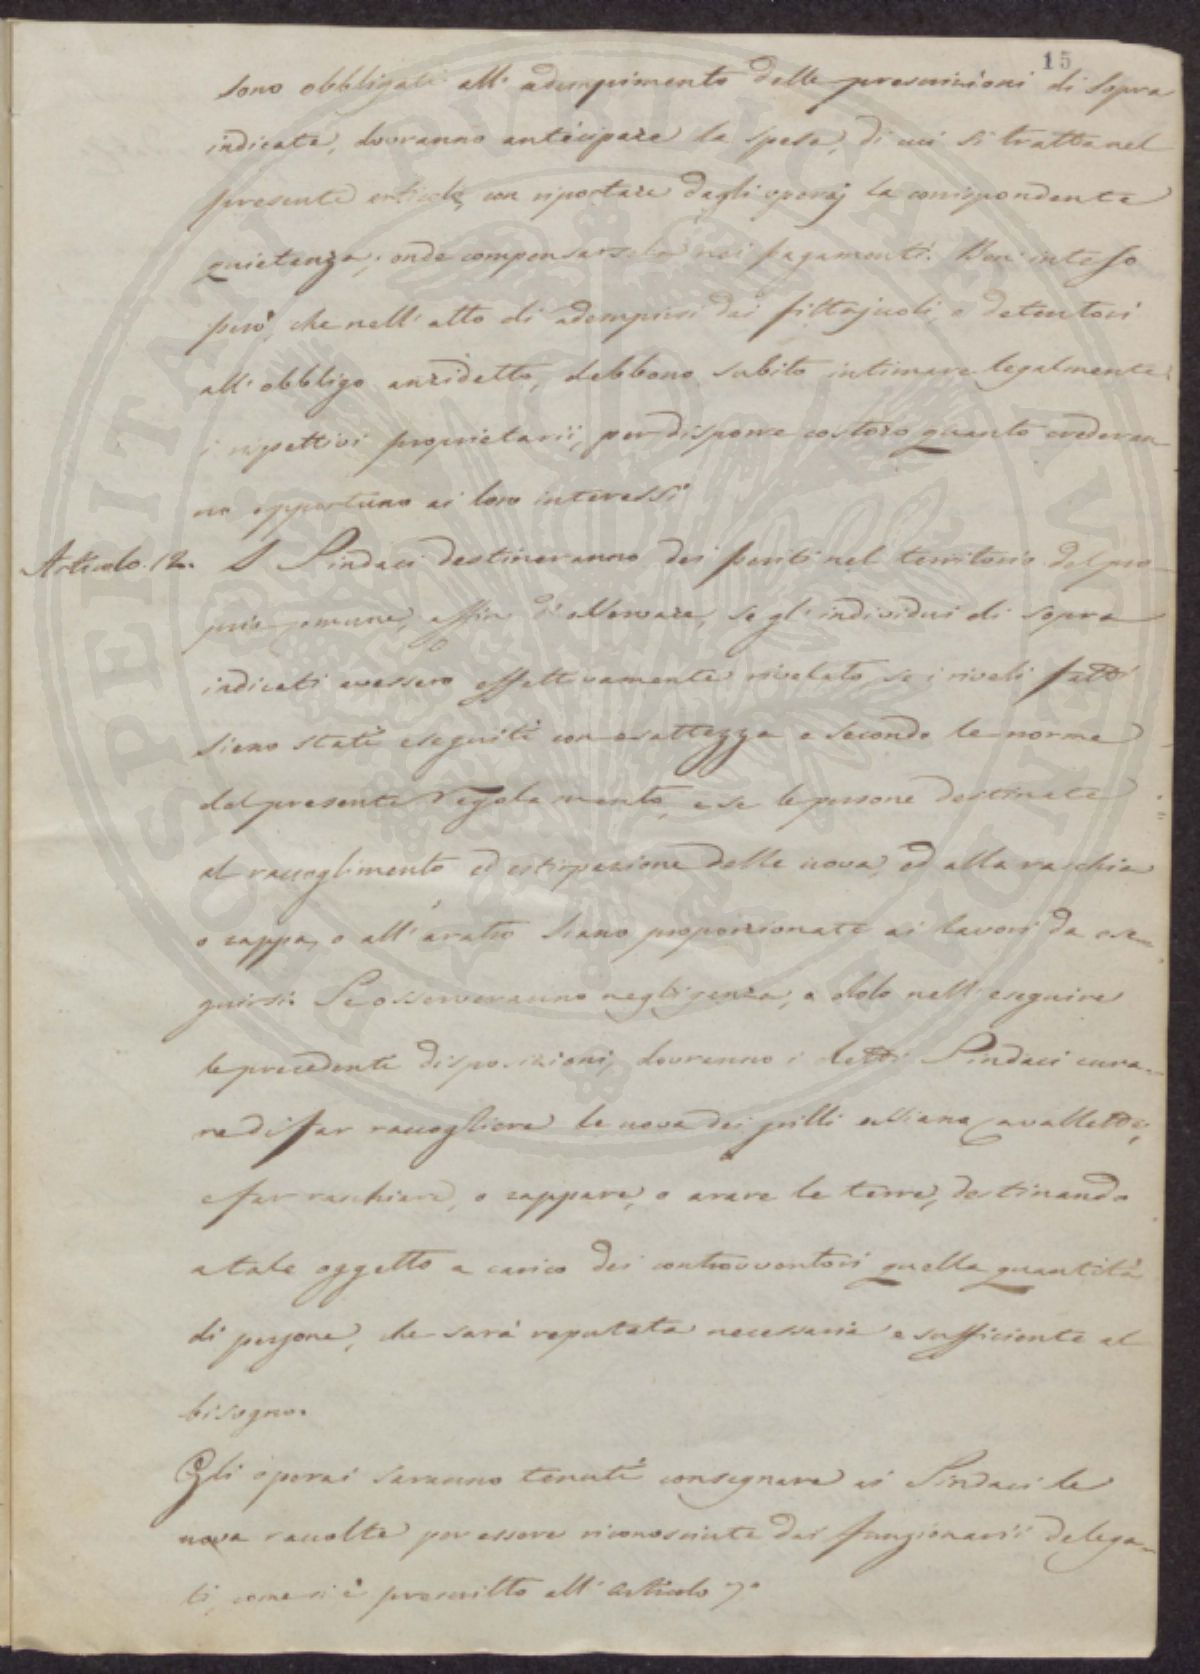 15
sono obbligati all' adempimento delle prescrizioni di sopra
indicate, dovranno anticipare la spesa, di cui si tratta nel
presente articolo, con riportare dagli operaj la corrispondente
quietanza, onde compensarsela nei pagamenti. Ben inteso
però, che nell' atto di adempirsi dai fittajuoli, o detentori
all' obbligo anzidetto, debbono subito intimare legalmente
i rispettivi proprietarii, per disporre costoro quanto crederan-
no opportuno ai loro interessi
Articolo 12. I Sindaci destineranno dei periti nel territorio del pro-
prio comune, affin d' osservare, se gl' individui di sopra
indicati avessero effettivamente rivelato, se i riveli fatti
sieno stati eseguiti con esattezza e secondo le norme
del presente Regolamento, e se le persone destinate
al raccoglimento ed estirpazione delle uova, ed alla raschia
o zappa, o all' aratro siano proporzionate ai lavori da ese-
guirsi. Se osserveranno negligenza, o dolo nell' eseguire
le precedenti disposizioni, dovranno i detti Sindaci cura-
re di far raccogliere le uova dei grilli ossiano cavallette,
e far raschiare, o zappare, o arare le terre, destinando
a tale oggetto a carico dei controventori quella quantità
di persone, che sarà reputata necessaria e sufficiente al
bisogno.
Gli operai saranno tenuti consegnare ai Sindaci le
uova raccolte per essere riconosciute dai funzionarii delega-
ti, come si è prescritto all' articolo 7°
POSPERITATI PVBLICAE AVGENDAE